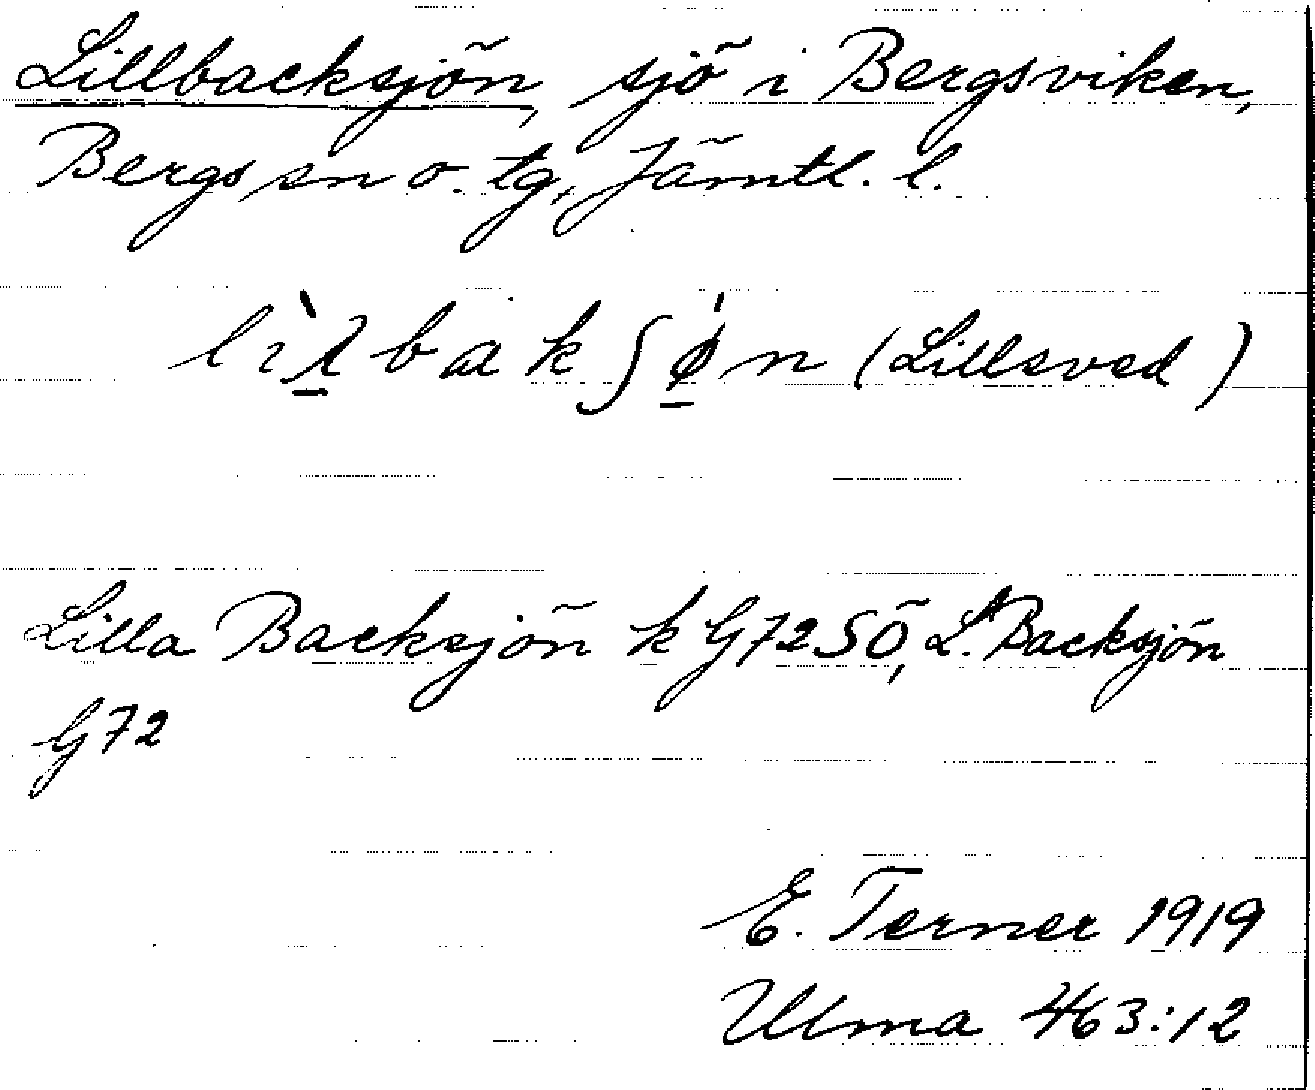 Lillbacksjön, sjö i Bergsviken,
Bergs sn o. tg, Jämtl. l.
lìl̲bakʃǿ̲n (Lillsved)
Lilla Backsjön k G72SÖ, L. Backsjön
G72
E. Terner 1919
Ulma 463:12